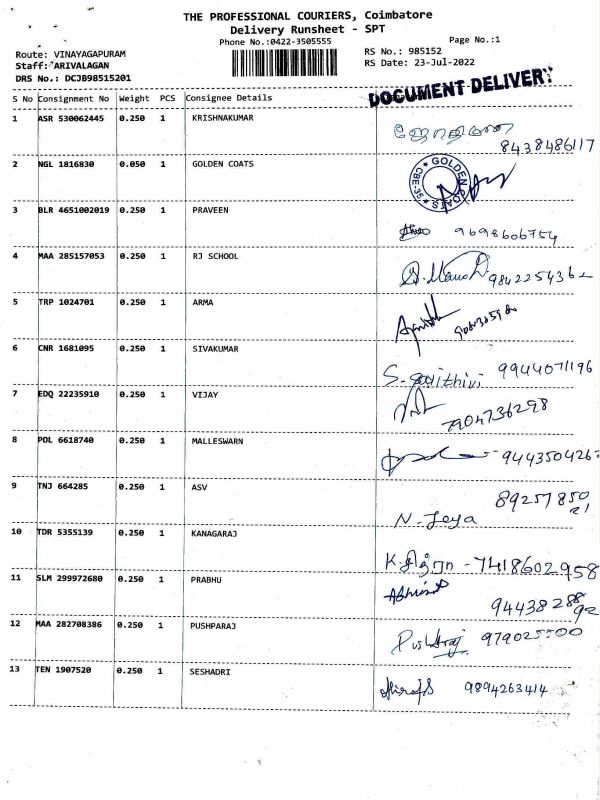 THE PROFESSIONAL COURIERS, Coimbatore
Delivery Runsheet - SPT
Phone No.:0422-3505555
Page No.:1
Route: VINAYAGAPURAM
RS No.: 985152
Staff: ARIVALAGAN
RS Date: 23-Jul-2022
DRS No.: DCJB98515201
DOCUMENT DELIVERY
S No Consignment No Weight PCS Consignee Details
1 ASR 530062445 0.250 1 KRISHNAKUMAR
8438486117
2 NGL 1816830 0.050 1 GOLDEN COATS
GOLDEN COATS CBE-35
3 BLR 4651002019 0.250 1 PRAVEEN
9698606754
4 MAA 285157053 0.250 1 RJ SCHOOL
9842254362
5 TRP 1024701 0.250 1 ARMA
6 CNR 1681095 0.250 1 SIVAKUMAR
S. Savithiri 9944071196
7 EDQ 22235910 0.250 1 VIJAY
7904736298
8 POL 6618740 0.250 1 MALLESWARN
944350426
9 TNJ 664285 0.250 1 ASV
89257850
21
N. Jeya
10 TDR 5355139 0.250 1 KANAGARAJ
K. சித்ரா - 7418602958
11 SLM 299972680 0.250 1 PRABHU
94438288
92
12 MAA 282708386 0.250 1 PUSHPARAJ
Pushparaj
13 TEN 1907520 0.250 1 SESHADRI
9894263414